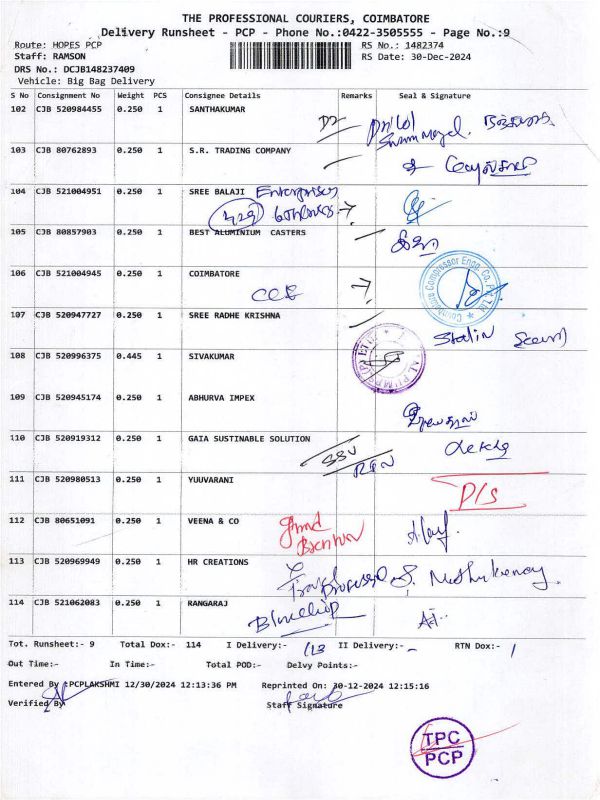 THE PROFESSIONAL COURIERS, COIMBATORE
Delivery Runsheet - PCP - Phone No.:0422-3505555 - Page No.:9
Route: HOPES PCP
RS No.: 1482374
Staff: RAMSON
RS Date: 30-Dec-2024
DRS No.: DCJB148237409
Vehicle: Big Bag Delivery
S No Consignment No Weight PCS Consignee Details Remarks Seal & Signature
102 CJB 520984455 0.250 1 SANTHAKUMAR
103 CJB 80762893 0.250 1 S.R. TRADING COMPANY
104 CJB 521004951 0.250 1 SREE BALAJI Enterprises
105 CJB 80857903 0.250 1 BEST ALUMINIUM CASTERS
106 CJB 521004945 0.250 1 COIMBATORE
Coimbatore Compressor Engg. Co. Pvt Ltd
107 CJB 520947727 0.250 1 SREE RADHE KRISHNA
Stalin
108 CJB 520996375 0.445 1 SIVAKUMAR
109 CJB 520945174 0.250 1 ABHURVA IMPEX
110 CJB 520919312 0.250 1 GAIA SUSTINABLE SOLUTION
111 CJB 520980513 0.250 1 YUUVARANI
D/S
112 CJB 80651091 0.250 1 VEENA & CO
113 CJB 520969949 0.250 1 HR CREATIONS
114 CJB 521062083 0.250 1 RANGARAJ
Tot. Runsheet:- 9 Total Dox:- 114 I Delivery:- 113 II Delivery:- RTN Dox:- 1
Out Time:- In Time:- Total POD:- Delvy Points:-
Entered By :PCPLAKSHMI 12/30/2024 12:13:36 PM Reprinted On: 30-12-2024 12:15:16
Verified By
Staff Signature
TPC
PCP